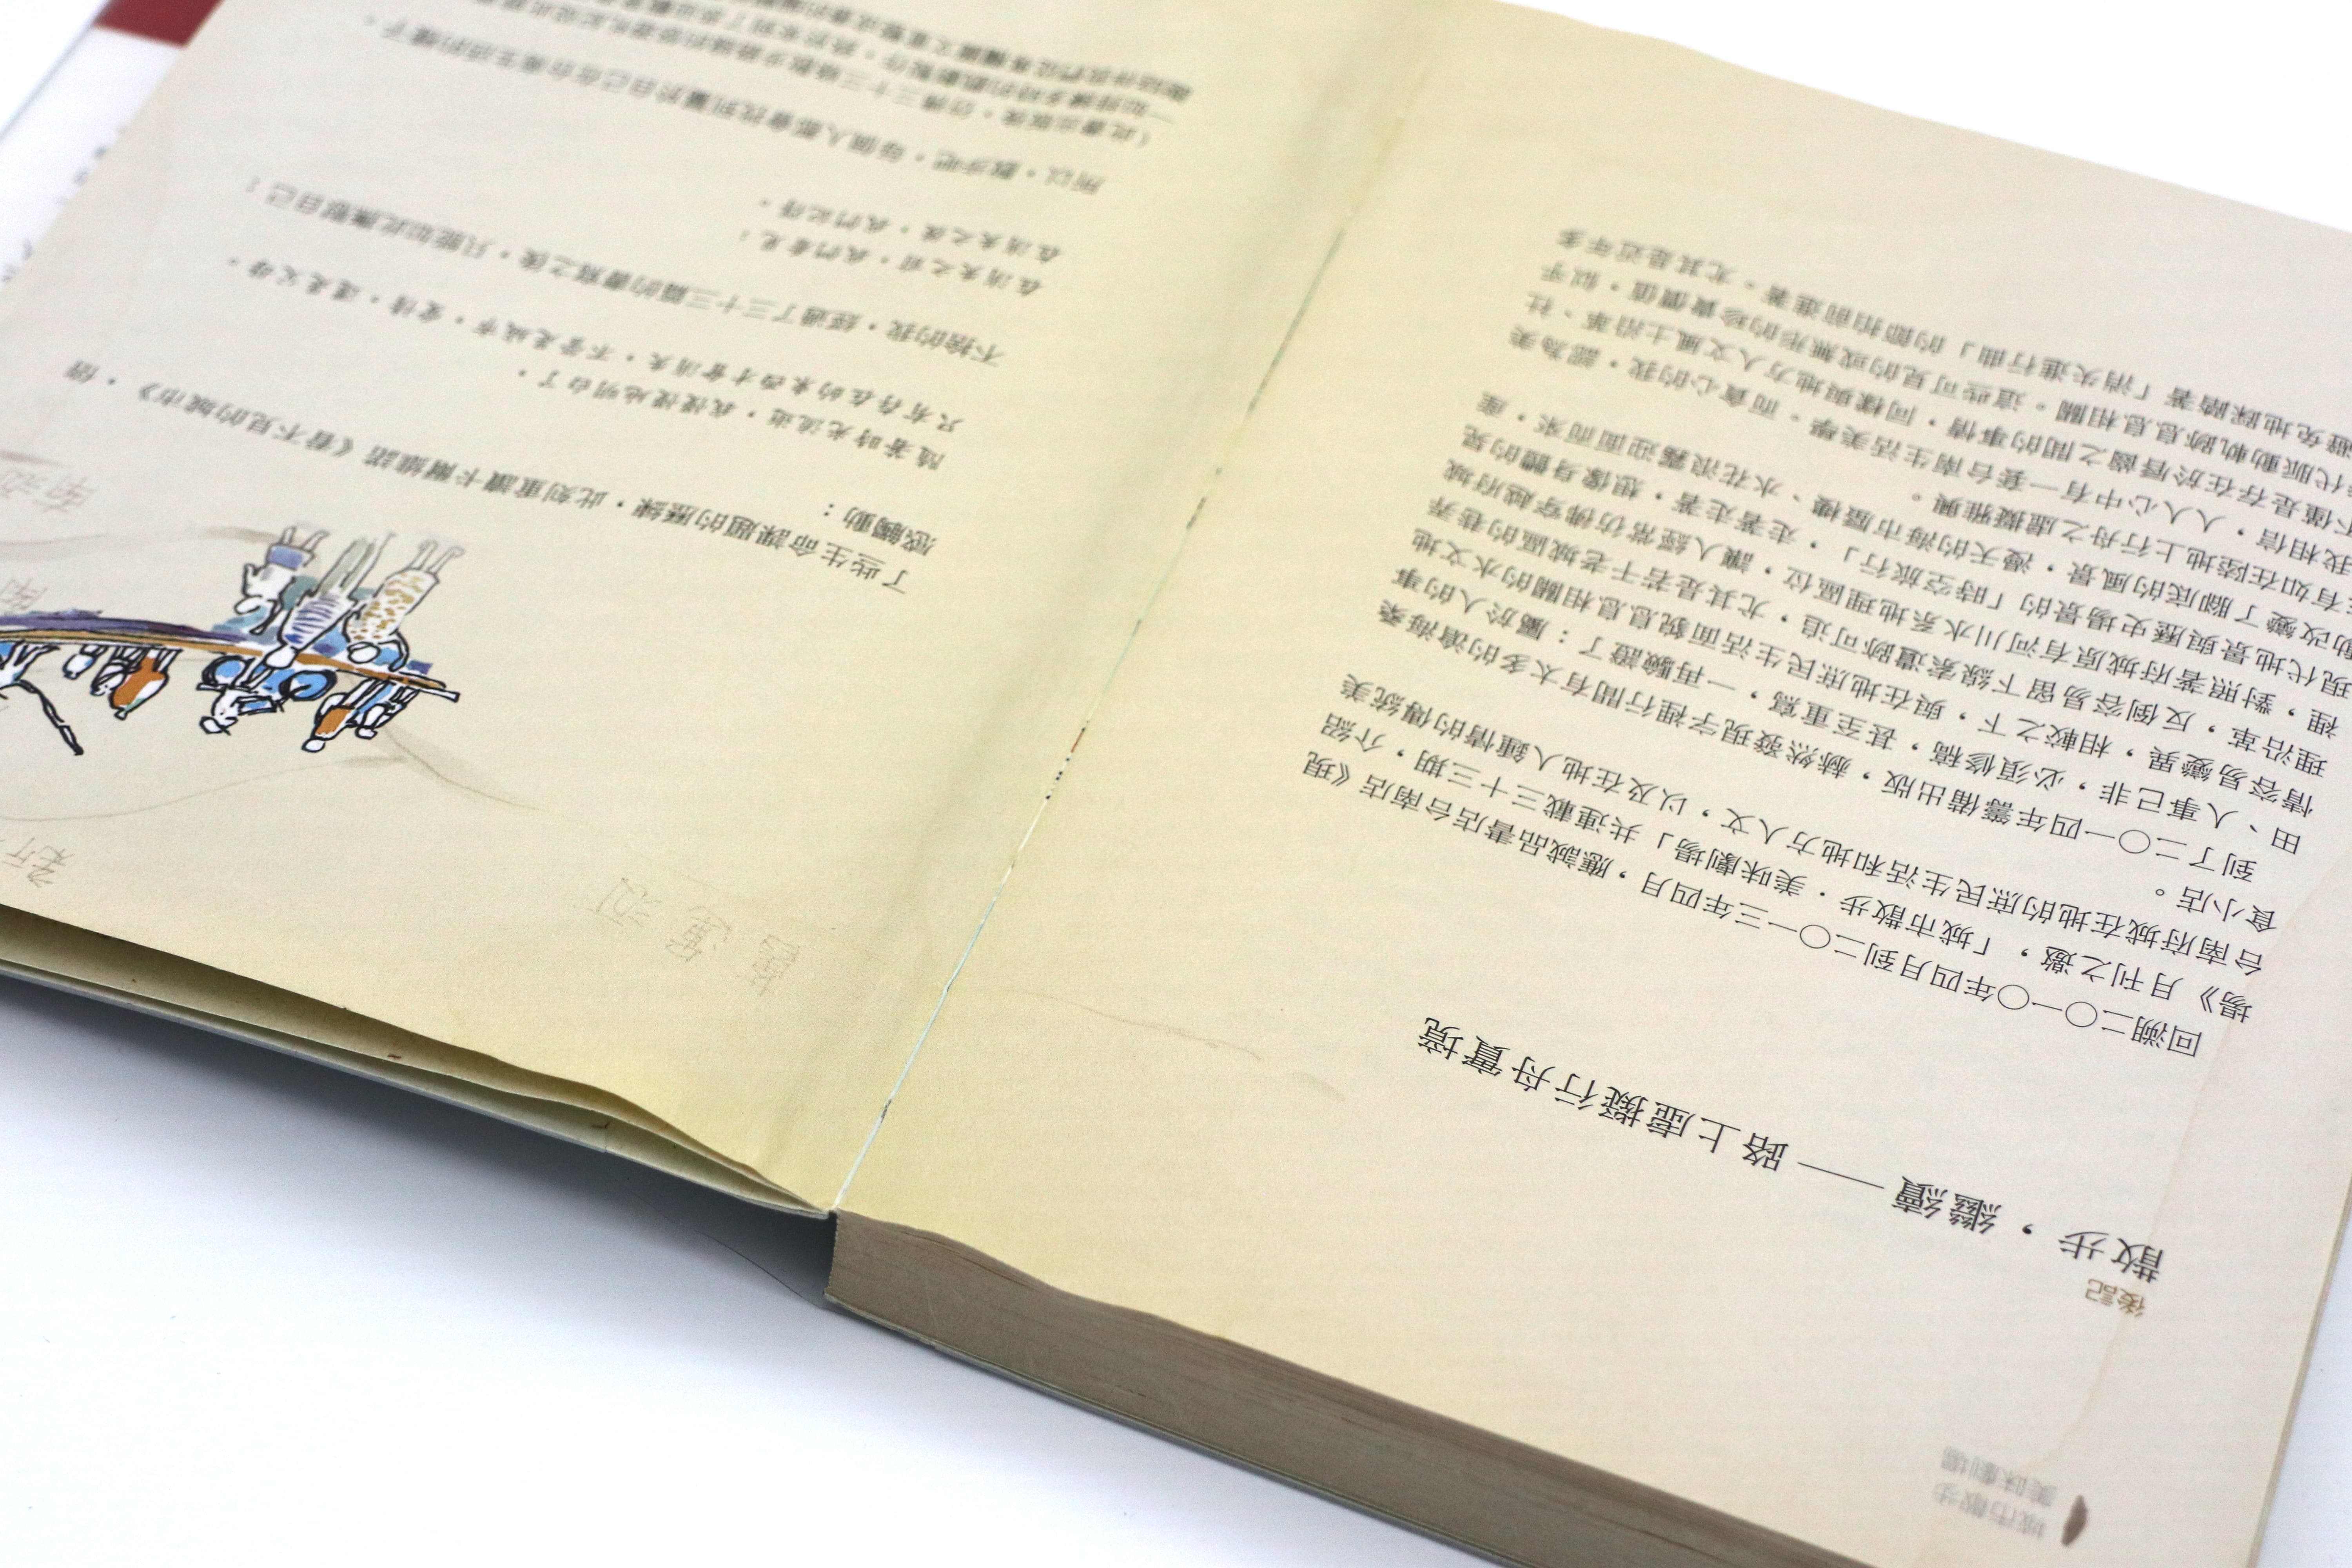 城市散步
美味劇場
後記
散步，繼續——路上虛擬行舟實境
回溯二〇一〇年四月到二〇一三年四月，應誠品書店台南店《現
場》月刊之邀，「城市散步．美味劇場」共連載三十三期，介紹
台南府城在地的庶民生活和地方人文，以及在地人鍾情的傳統美
食小店。
到了二〇一四年籌備出版，赫然發現字裡行間有太多的滄海桑
田、人事已非，必須修稿，甚至重寫，一再驗證了：屬於人的事
情容易變異，相較之下，與在地庶民生活面貌息息相關的水文地
理沿革，反倒容易留下線索遺跡可追，尤其是若干老城區的巷弄
裡，對照著府城原有河川水系地理區位，讓人經常仿佛穿越府城
現代地景與歷史場景的「時空旅行」，走著走著，想像身體的晃
動改變了腳底的風景，漫天的海市蜃樓、水花浪霧迎面而來，座
有如在陸地上行舟之虛擬雅興。
我相信，人人心中有一套台南生活美學。而貪心的我，認為美
不僅是存在於唇齒之間的事情，同樣與地方人文風土沿革、社
代脈動軌跡息息相關。這些可見的或無形的珍貴價值，似乎
避免地踩踏著「消失進行曲」的節拍前進著，尤其是近年多
了些生命課題的歷練，此刻重讀卡爾維諾《看不見的城市》，倍
感觸動：
隨著時光流逝，我慢慢地明白了，
只有存在的東西才會消失，不管是城市，愛情，還是父母。
不捨的我，經過了三十三篇的書寫之後，只能如此撫慰自己：
在消失之前，我們看見；
在消失之後，我們記得。
所以，散步吧，每個人都會找到屬於自己在台南生活的樣子。